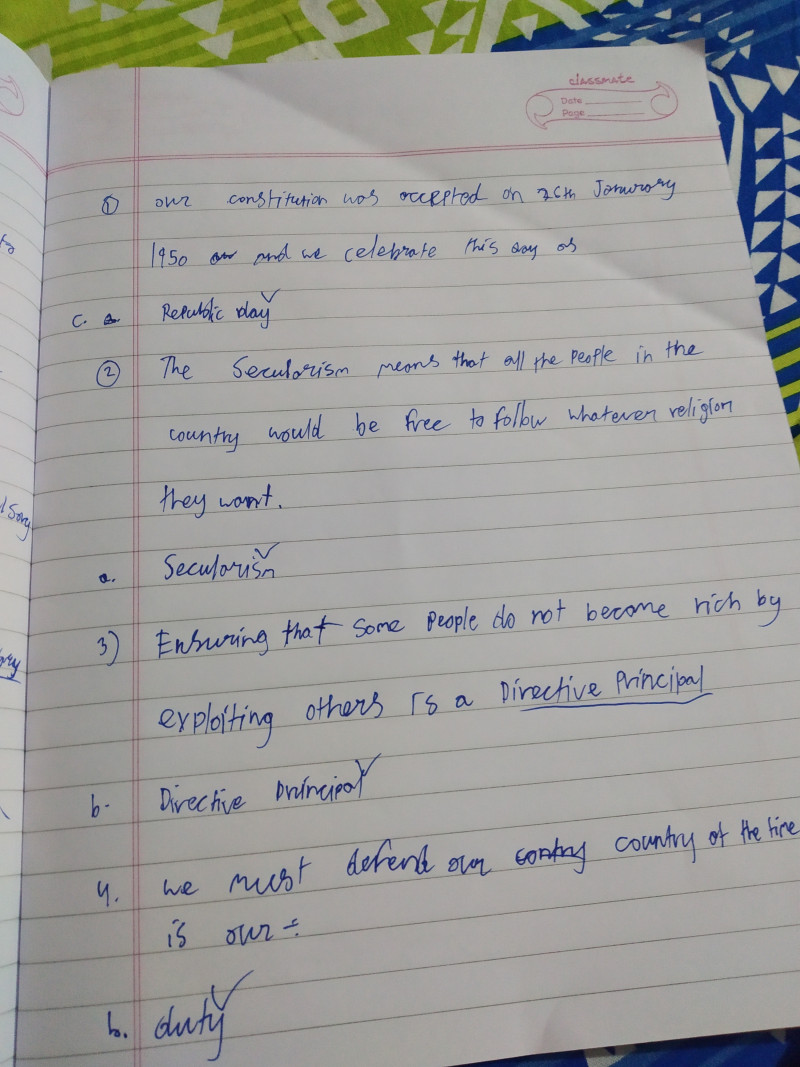 classmate
Date
Page
① our constitution was accepted on 26th Janurary
1950 and we celebrate this day as
c. Republic day
② The Secularism means that all the people in the
country would be free to follow whatever religion
they want.
a. Secularism
3) Ensuring that some people do not become rich by
exploiting others is a Directive Principal
b. Directive principal
4. we must defend our country at the time
is our :-
b. duty